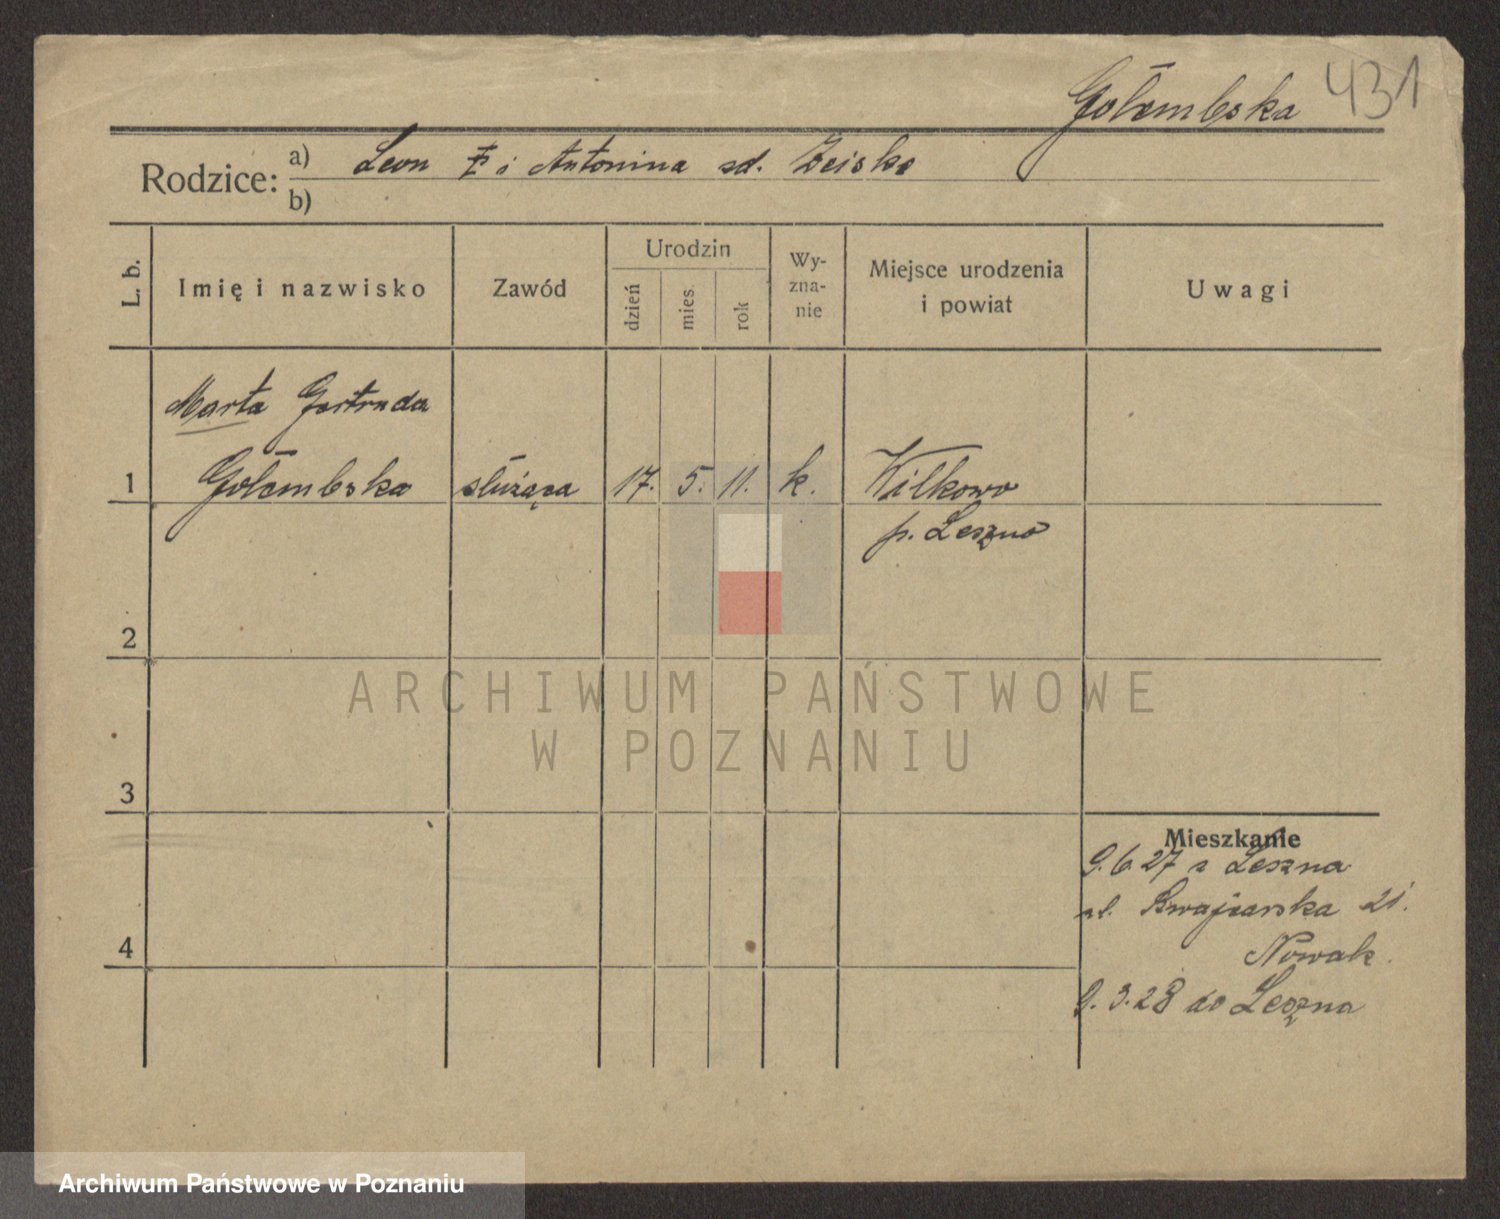 Gołembska 431
Rodzice: a) Leon i Antonina zd.
b)
L. b.
Imię i nazwisko
Zawód
Urodzin
dzień
mies.
rok
Wy-
zna-
nie
Miejsce urodzenia
i powiat
Uwagi
Marta Gertruda
1 Gołembska służąca 17. 5. 11. k. Wilkowo
p. Leszno
2
ARCHIWUM PAŃSTWOWE
W POZNANIU
3
Mieszkanie
9. 6. 27 z Leszna
ul. 21.
4
Nowak.
9. 3. 28 do Leszna
Archiwum Państwowe w Poznaniu